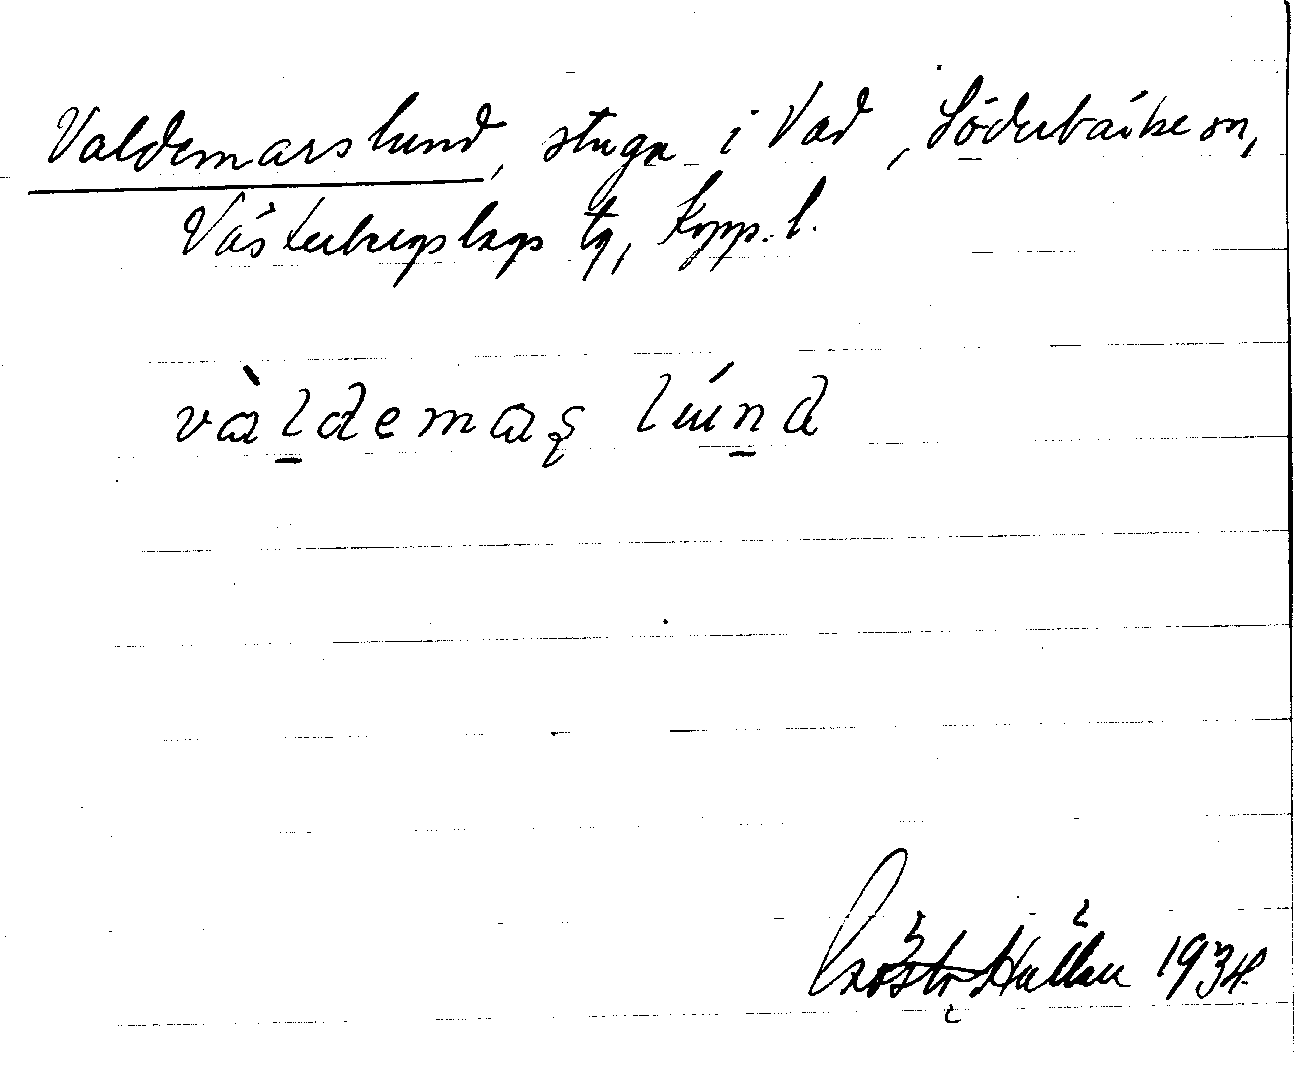 Valdemarslund, stuga i Vad, Söderbärke sn,
Västerbergslags tg, Kopp. l.
vàl̠demaʂ lún̠d
Hällen 1934.